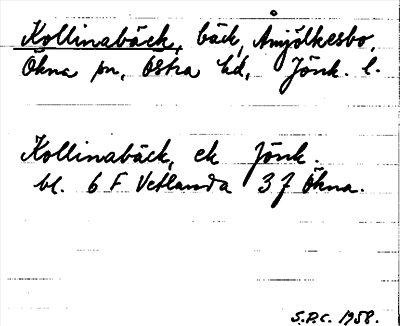 Kollinabäck, bäck, Åmjölkesbo,
Ökna sn, Östra hd, Jönk. l.
Kollinabäck, ek Jönk.
bl. 6 F Vetlanda 3 f Ökna.
S.P.C. 1958.